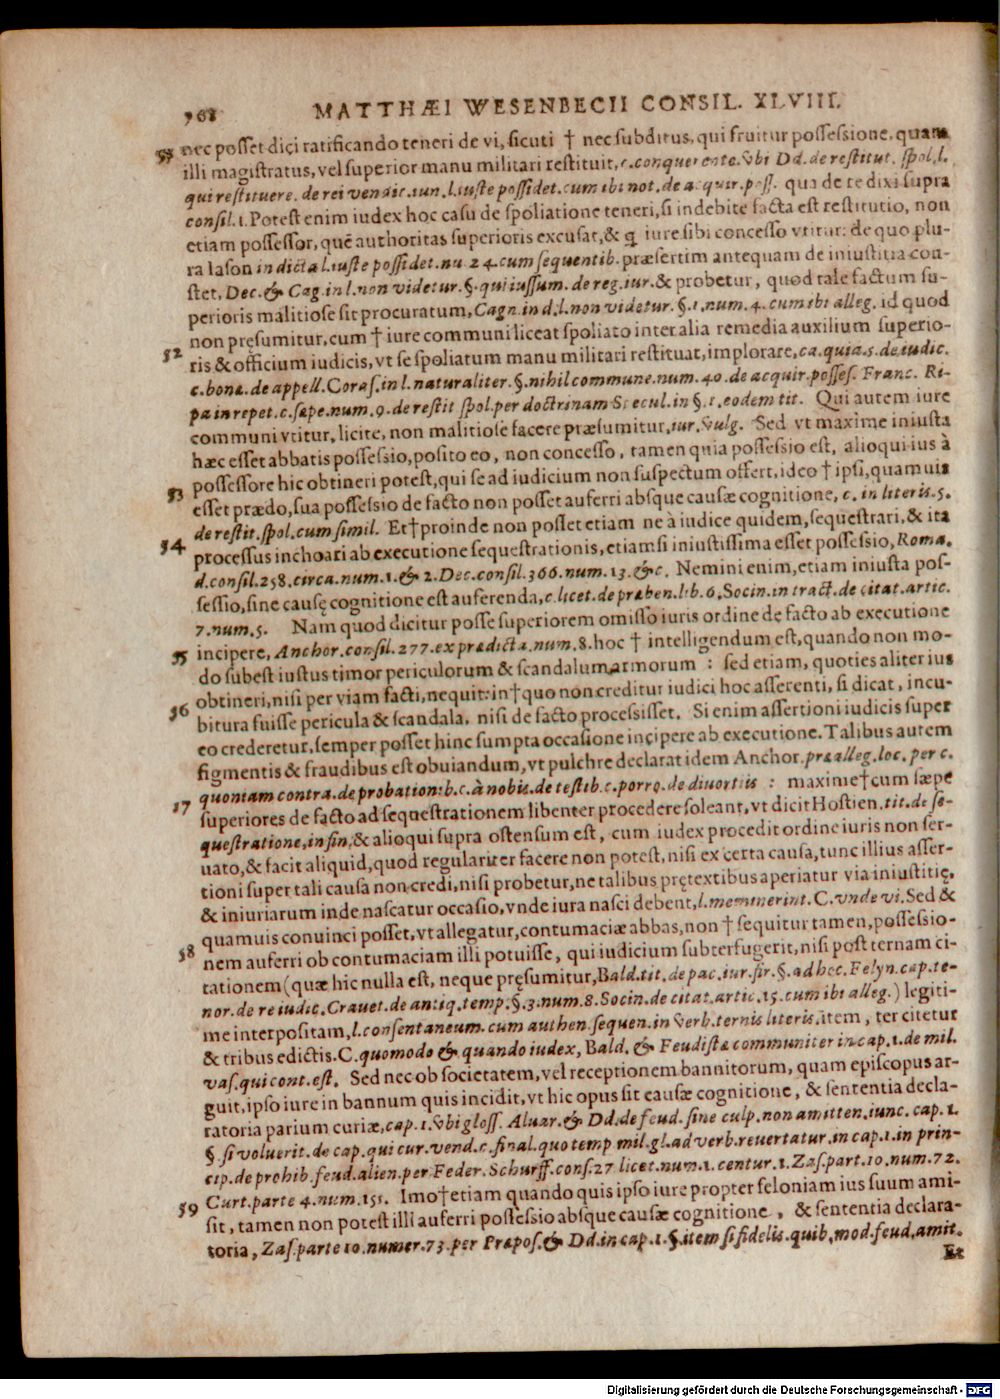 768 MATTHÆI WESENBECII CONSIL. XLVIII.
nec posset dici ratificando teneri de vi, sicuti † nec subditus, qui fruitur possessione, quam
illi magistratus, vel superior manu militari restituit, c. conquerente. vbi Dd. de restitut. spol. l.
qui restituere. de rei vendic. iun. l. iuste possidet. cum ibi not. de acquir. poss. qua de re dixi supra
consil. 1. Potest enim iudex hoc casu de spoliatione teneri, si indebite facta est restitutio, non
etiam possessor, quẽ authoritas superioris excusat, & ꝗ iure sibi concesso vtitur: de quo plu-
ra Iason in dicta l. iuste possidet. nu. 24. cum sequentib. præsertim antequam de iniustitia con-
stet, Dec. & Cag. in l. non videtur. §. qui iussum. de reg. iur. & probetur, quod tale factum su-
perioris malitiose sit procuratum, Cagn. in d. l. non videtur. §. 1. num. 4. cum ibi alleg. id quod
non pręsumitur, cum † iure communi liceat spoliato inter alia remedia auxilium superio-
52 ris & officium iudicis, vt se spoliatum manu militari restituat, implorare, ca. quia. 5. de iudic.
c. bona. de appell. Coras. in l. naturaliter. §. nihil commune. num. 40. de acquir. posses. Franc. Ri-
pa in repet. c. sæpe. num. 9. de restit spol. per doctrinam Specul. in §. 1. eodem tit. Qui autem iure
communi vtitur, licite, non malitiose facere præsumitur, iur. vulg. Sed vt maxime iniusta
hæc esset abbatis possessio, posito eo, non concesso, tamen quia possessio est, alioqui ius à
possessore hic obtineri potest, qui se ad iudicium non suspectum offert, ideo † ipsi, quamuis
53 esset prædo, sua possessio de facto non posset auferri absque causæ cognitione, c. in literis. 5.
de restit. spol. cum simil. Et † proinde non posset etiam ne à iudice quidem, sequestrari, & ita
54 processus inchoari ab executione sequestrationis, etiamsi iniustissima esset possessio, Roma.
d. consil. 258. circa. num. 1. & 2. Dec. consil. 366. num. 13. & c. Nemini enim, etiam iniusta pos-
sessio, sine causę cognitione est auferenda, c. licet. de præben. lib. 6. Socin. in tract. de citat. artic.
7. num. 5. Nam quod dicitur posse superiorem omisso iuris ordine de facto ab executione
incipere, Anchor. consil. 277. ex prædicta. num. 8. hoc † intelligendum est, quando non mo-
55 do subest iustus timor periculorum & scandalum armorum : sed etiam, quoties aliter ius
obtineri, nisi per viam facti, nequit: in † quo non creditur iudici hoc asserenti, si dicat, incu-
56 bitura fuisse pericula & scandala, nisi de facto processisset. Si enim assertioni iudicis super
eo crederetur, semper posset hinc sumpta occasione incipere ab executione. Talibus autem
figmentis & fraudibus est obuiandum, vt pulchre declarat idem Anchor. præalleg. loc. per c.
quoniam contra. de probation: b. c. à nobis. de testib. c. porro. de diuortiis : maxime † cum sæpe
57 superiores de facto ad sequestrationem libenter procedere soleant, vt dicit Hostien. tit. de se-
questratione, in fin. & alioqui supra ostensum est, cum iudex procedit ordine iuris non ser-
uato, & facit aliquid, quod regulariter facere non potest, nisi ex certa causa, tunc illius asser-
tioni super tali causa non credi, nisi probetur, ne talibus prętextibus aperiatur via iniustitię,
& iniuriarum inde nascatur occasio, vnde iura nasci debent, l. meminerint. C. vnde vi. Sed &
quamuis conuinci posset, vt allegatur, contumaciæ abbas, non † sequitur tamen, possessio-
58 nem auferri ob contumaciam illi potuisse, qui iudicium subterfugerit, nisi post ternam ci-
tationem (quæ hic nulla est, neque pręsumitur, Bald. tit. de pac. iur. fir. §. ad hec. Felyn. cap. te-
nor. de re iudic. Crauet. de antiq. temp. §. 3. num. 8. Socin. de citat. artic. 15. cum ibi alleg.) legiti-
me interpositam, l. consentaneum. cum authen. sequen. in verb. ternis literis. item, ter citetur
& tribus edictis. C. quomodo & quando iudex, Bald. & Feudistæ communiter in cap. 1. de mil.
vas. qui cont. est. Sed nec ob societatem, vel receptionem bannitorum, quam episcopus ar-
guit, ipso iure in bannum quis incidit, vt hic opus sit causæ cognitione, & sententia decla-
ratoria parium curiæ, cap. 1. vbi gloss. Aluar. & Dd. de feud. sine culp. non amitten. iunc. cap. 1.
§. si voluerit. de cap. qui cur. vend. c. final. quo temp mil. gl. ad verb. reuertatur. in cap. 1. in prin-
cip. de prohib. feud. alien. per Feder. Schurff. cons. 27. licet. num. 1. centur. 1. Zas. part. 10. num. 72.
Curt. parte 4. num. 151. Imo † etiam quando quis ipso iure propter feloniam ius suum ami-
59 sit, tamen non potest illi auferri possessio absque causæ cognitione, & sententia declara-
toria, Zas. parte 10. numer. 73. per Præpos. & Dd. in cap. 1. §. item si fidelis. quib. mod. feud. amit.
Et
Digitalisierung gefördert durch die Deutsche Forschungsgemeinschaft - DFG